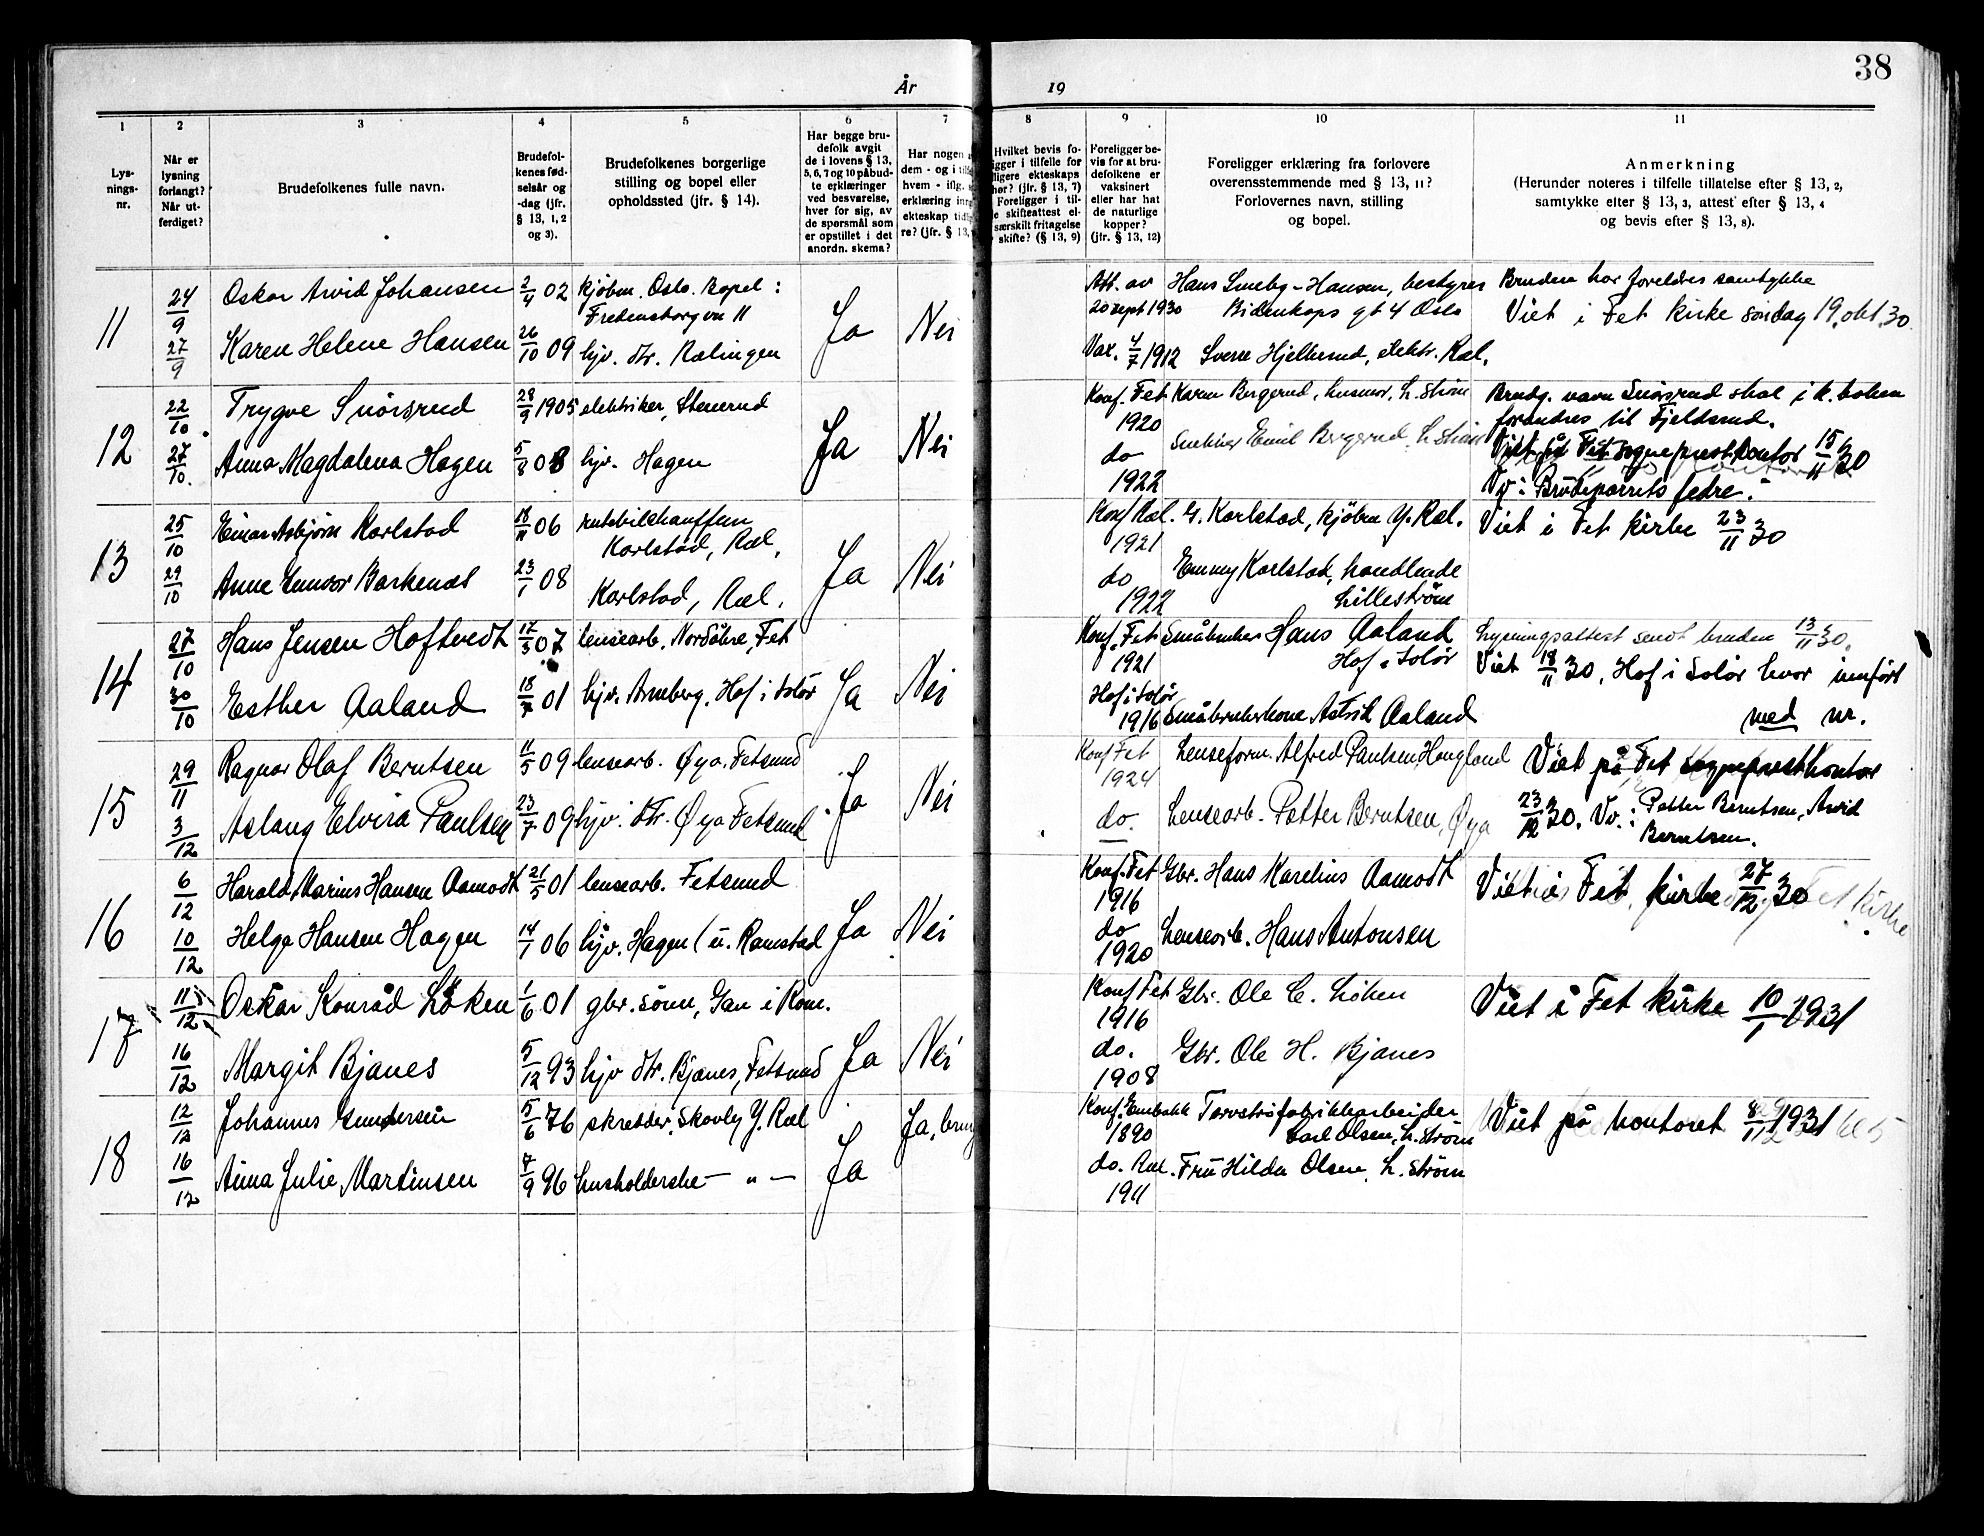 38
År 19
1 2 3 4 5 6 7 8 9 10 11
Lys-
nings-
nr.
Når er
lysning
forlangt?
Når ut-
ferdiget?
Brudefolkenes fulle navn.
Brudefol-
kenes fød-
selsår og
-dag (jfr.
§ 13, 1, 2
og 3).
Brudefolkenes borgerlige
stilling og bopel eller
opholdssted (jfr. § 14).
Har begge bru-
defolk avgit
de i lovens § 13,
5, 6, 7 og 10 påbud-
te erklæringer
ved besvarelse,
hver for sig, av
de spørsmål som
er opstillet i det
anordn. skema?
Har nogen
dem - og i
hvem - iflg.
erklæring
ekteskap
re? (jfr. § 13,
Hvilket bevis fo-
ligger i tilfelle for
ligere ekteskaps
hør? (jfr. § 13, 7)
Foreligger i til-
le skifteattest el-
særskilt fritagelse
skifte? (§ 13, 9)
Foreligger be-
vis for at bru-
defolkene er
vaksinert
eller har hat
de naturlige
kopper?
(jfr. § 13, 12)
Foreligger erklæring fra forlovere
overensstemmende med § 13, 11?
Forlovernes navn, stilling
og bopel.
Anmerkning
(Herunder noteres i tilfelle tillatelse efter § 13, 2,
samtykke efter § 13, 3, attest efter § 13, 4
og bevis efter § 13, 8).
11
24/9
27/9
Oskar Arvid Johansen 2/4 02 kjøbm. Oslo. Bopel:
Fredensborgvn 11
Karen Helene Hansen 26/10 09 hjv. dtr. Rælingen
Ja Nei
Att. av
20 sept 1930
Vax. 4/7 1912
Hans Smeby-Hansen, bestyrer
Bidenkaps gt 4 Oslo
Sverre Hjellerud, elektr. Ræl.
Bruden har foreldres samtykke
Viet i Fet kirke søndag 19. okt. 30.
12
22/10
27/10.
Trygve Snørsrud 28/9 1905 elektriker, Stenerud
Anna Magdalena Hagen 5/8 03 hjv. Hagen
Ja Nei
Konf. Fet
1920
do
1922
Karen Bergerud, husmor, L. Strøm
Snekker Emil Bergerud, L. Strøm
Brudg. navn Snørsrud skal i k. boken
forandres til Fjeldsrud.
Viet på Fet sogneprestkontor 15/11 30
Vv: Brudeparrets fedre.
13
25/10
29/10
Einar Asbjørn Karlstad 18/11 06 rutebilchauffeur
Karlstad, Ræl.
Anne Gunvor Barkenæs 23/1 08 Karlstad, Ræl.
Ja Nei
Konf Ræl.
1921
do
1922
G. Karlstad, kjøbm Y. Ræl.
Emmy Karlstad, handlende
Lilleström
Viet i Fet kirke 23/11 30
14
27/10
30/10
Hans Jensen Hoftvedt 17/3 07 lensearb. Nordåhre, Fet
Esther Aaland 18/7 01 hjv. Arneberg, Hof i Solør
Ja Nei
Konf. Fet
1921
Hof i Solør
1916
Småbruker Hans Aaland
Hof i Solør
Småbrukerkone Astrid Aaland
Lysningsattest sendt bruden 13/11 30.
Viet 18/11 30, Hof i Solør hvor innført
med nr.
15
29/11
3/12
Ragnar Olaf Berntsen 11/5 09 lensearb. Øya, Fetsund
Aslaug Elvira Paulsen 23/7 09 hjv. dtr. Øya Fetsund
Ja Nei
Konf Fet
1924
do.
Lenseform. Alfred Paulsen, Haugland
Lensearb. Petter Berntsen, Øya
Viet på Fet sogneprestkontor
23/12 30. Vv.: Petter Berntsen, Arvid
Berntsen.
16
6/12
10/12
Harald Marius Hansen Aamodt 21/5 01 lensearb. Fetsund
Helga Hansen Hagen 14/1 06 hjv. Hagen (u. Ramstad
Ja Nei
Konf. Fet
1916
do
1920
Gbr. Hans Karelius Aamodt
Lensearb. Hans Antonsen
Viet i Fet kirke 27/12 30
Fet kirke
17
11/12
16/12
Oskar Konråd Løken 1/6 01 gbr. sønn, Gan i Rom.
Margit Bjanes 5/12 93 hjv dtr. Bjanes, Fetsund
Ja Nei
Konf Fet
1916
do.
1908
Gbr. Ole C. Løken
Gbr. Ole H. Bjanes
Viet i Fet kirke 10/1 1931
18
12/12
16/12
Johannes Gundersen 5/6 76 skredder, Skovly Y. Ræl
Anna Julie Martinsen 7/9 96 husholderske — " —
Ja Ja,
Konf. Enebakk
1890
do. Ræl.
1911
Torvstrøfabrikkarbeider
Carl Olsen, L. Strøm
Fru Hilda Olsen, L. Strøm
Viet på kontoret 8/11 1931 kl 5